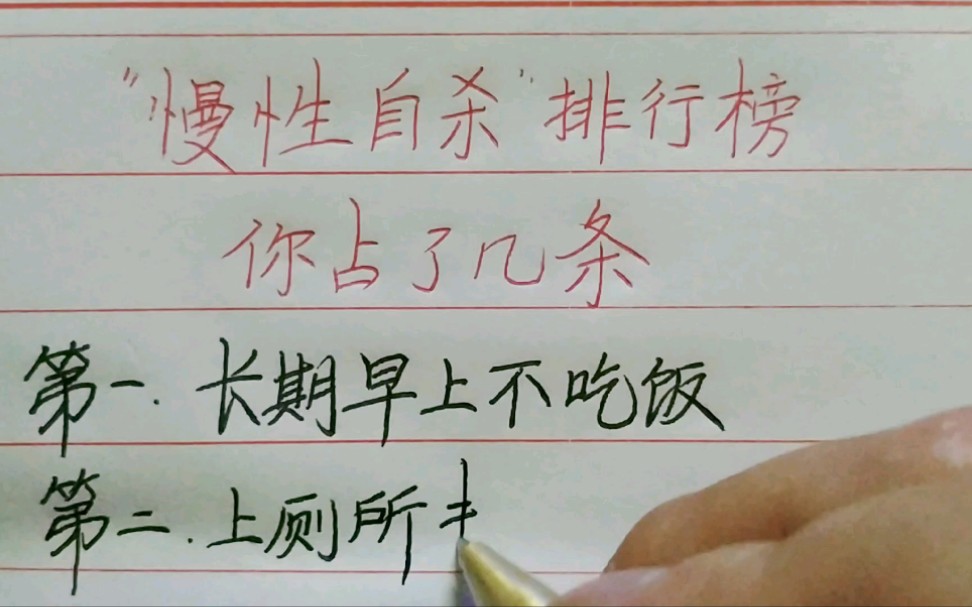 "慢性自杀"排行榜
你占了几条
第一.长期早上不吃饭
第二.上厕所